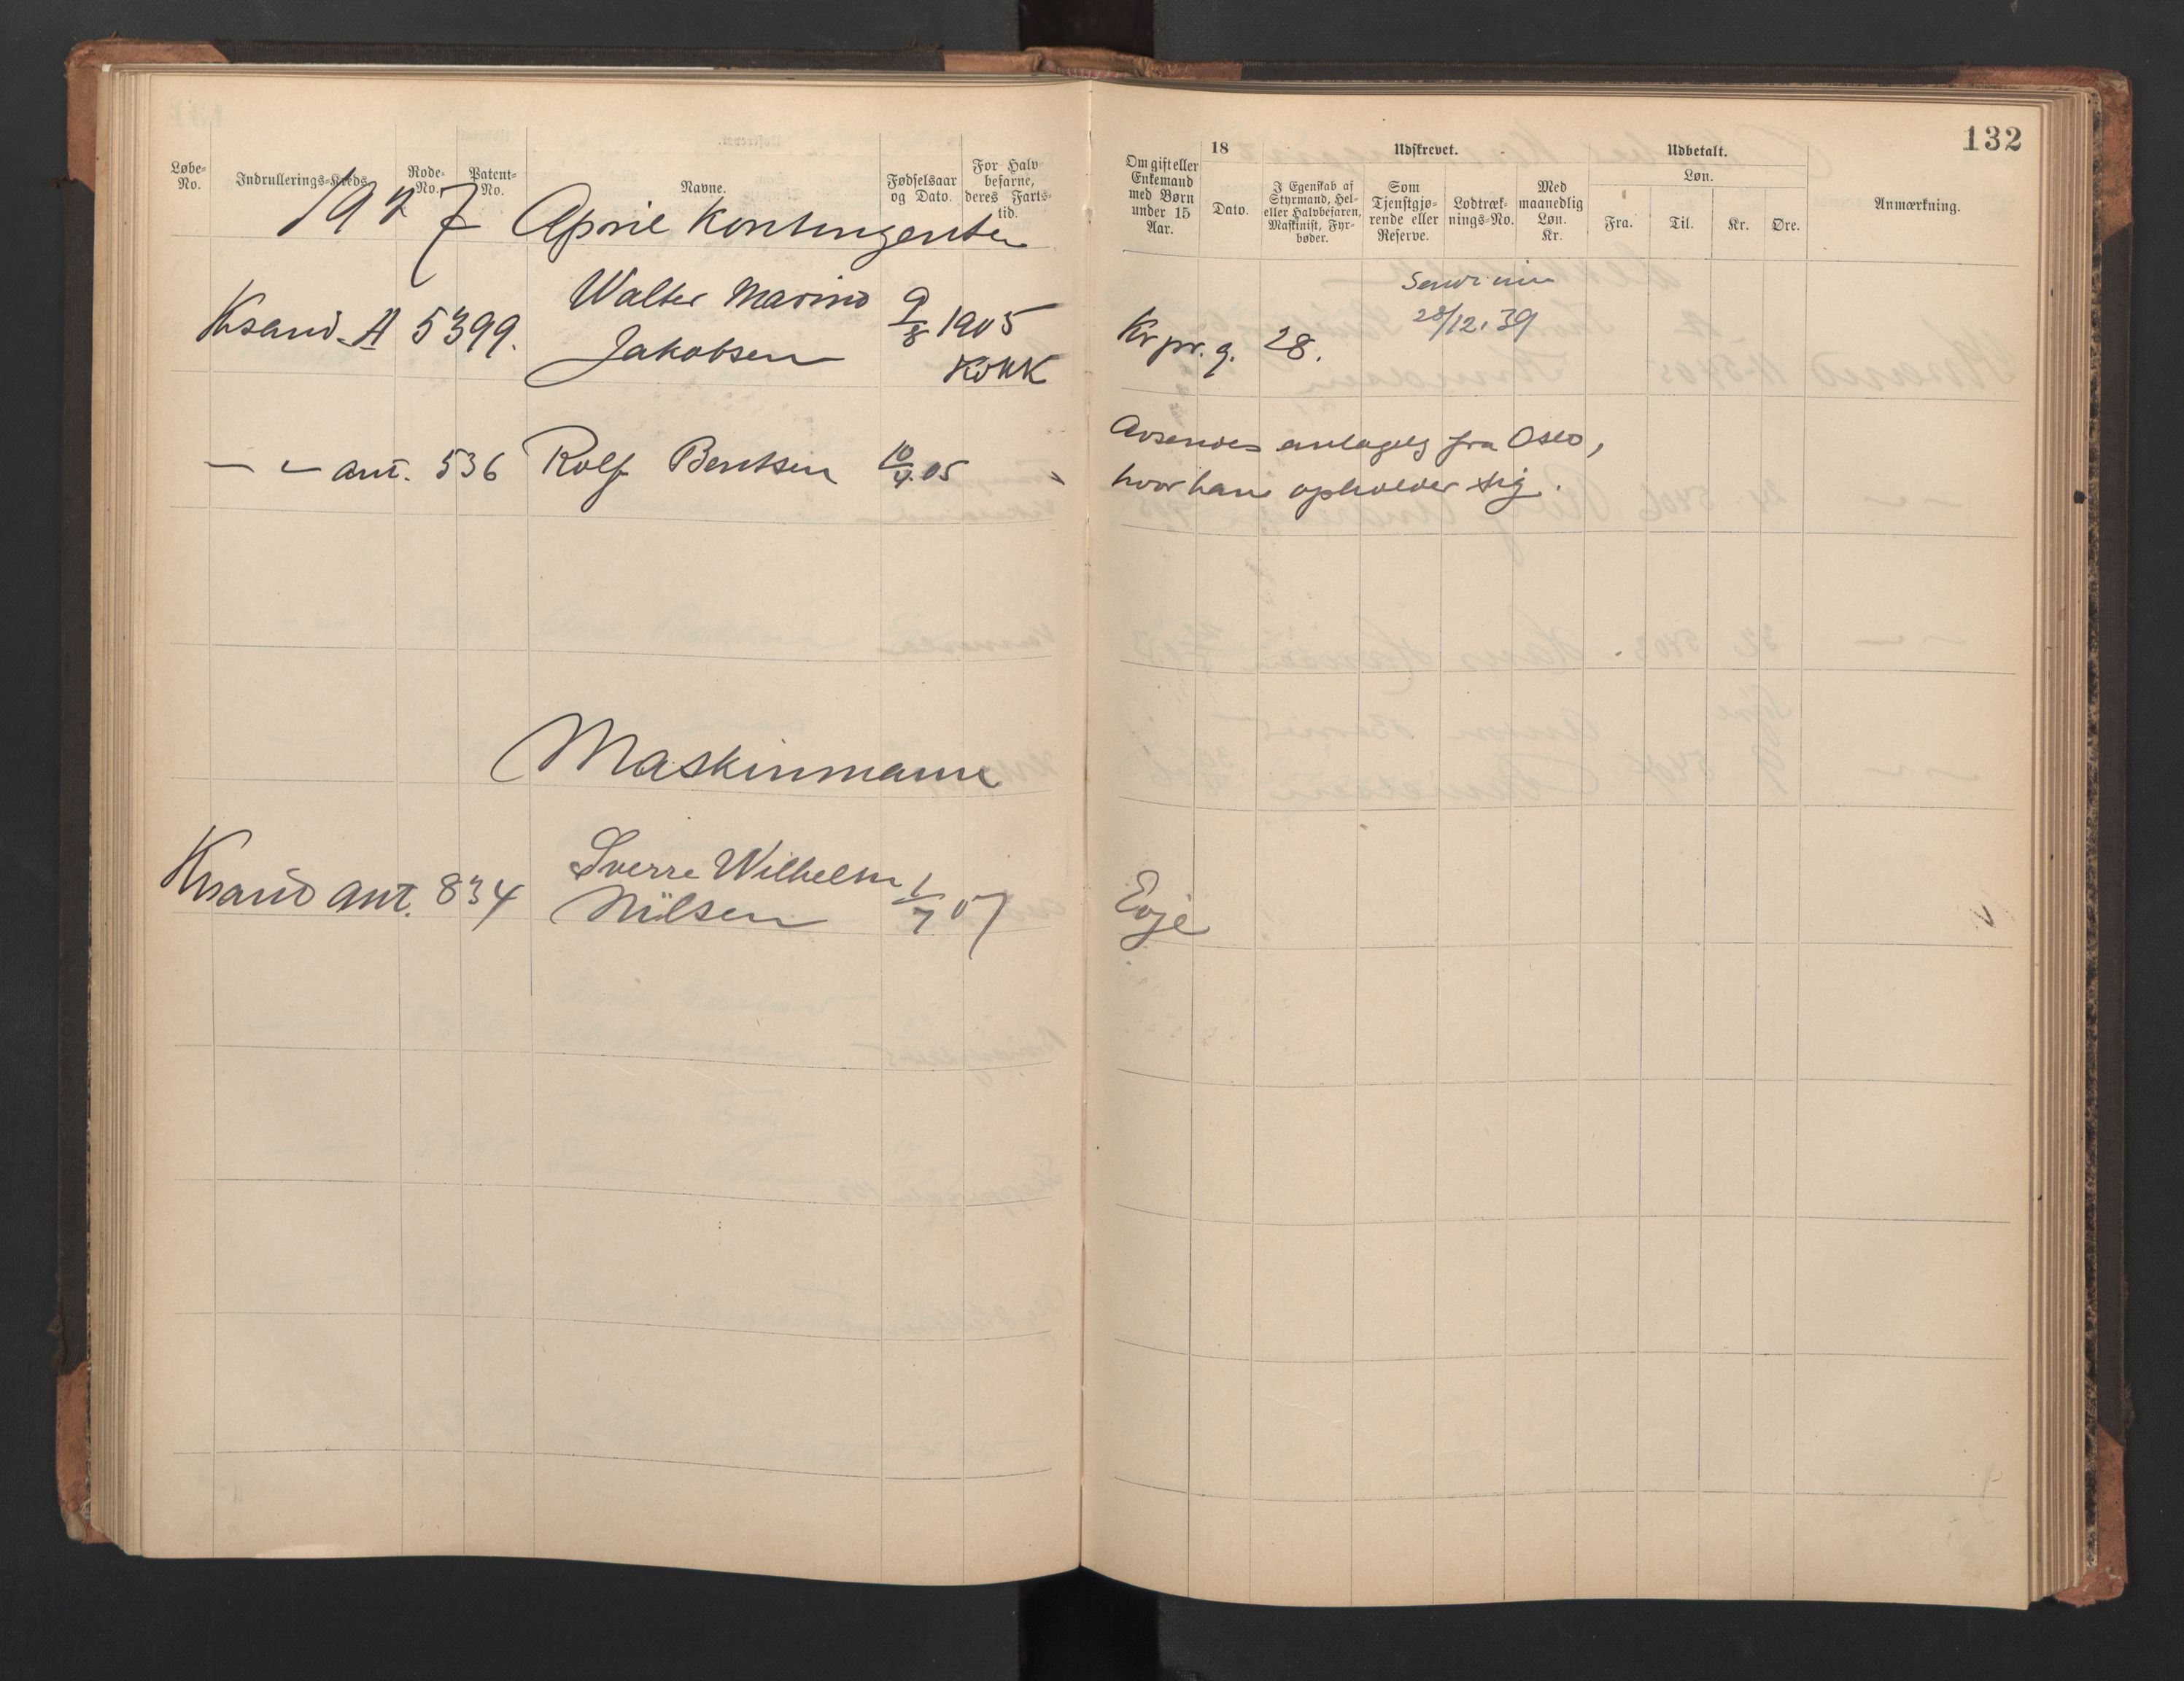 132
Løbe-No. Indrullerings-Kreds. Rode-No. Patent-No. Navne. Fødselsaar og Dato. For Halvbefarne, deres Fartstid.
Om gift eller Enkemand med Børn under 15 Aar. 18 Dato. Udskrevet. I Egenskab af Styrmand, Hel- eller Halvbefaren, Maskinist, Fyrbøder. Som Tjenstgjørende eller Reserve. Lodtræknings-No. Med maanedlig Løn. Kr. Udbetalt. Løn. Fra. Til. Kr. Øre. Anmærkning.
1927 April Kontingenten
Ksand. A 5399. Walter Marino
Jakobsen 9/8 1905
Kokk
Kr pr. g. 28.
28/12.39
— — ant. 536 Rolf Bentsen 10/4.05
Avsendes antagelig fra Oslo,
hvor han opholder sig.
Maskinmann
Ksand ant. 834 Sverre Wilhelm
Nilsen 1/7 07
Evje